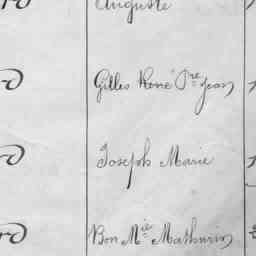 Auguste
Gilles René Pre Jean
Joseph Marie
Bon Mie Mathurin